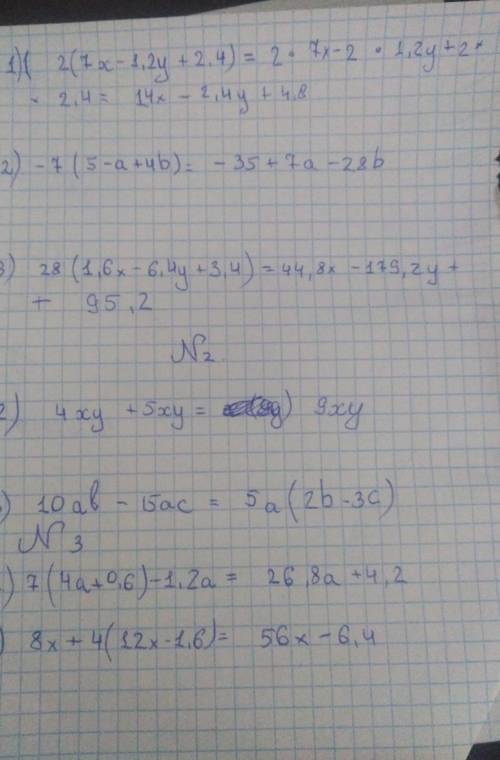 1) 2(7x-1,2y+2,4) = 2 · 7x-2 · 1,2y+2·
· 2,4 = 14x - 2,4y + 4,8
2) -7(5-a+4b) = -35+7a-28b
3) 28(1,6x-6,4y+3,4) = 44,8x-179,2y+
+ 95,2
N2
2) 4xy + 5xy = 9xy
) 10ab - 15ac = 5a(2b-3c)
N3
) 7(4a+0,6)-1,2a = 26,8a+4,2
) 8x+4(12x-1,6) = 56x-6,4